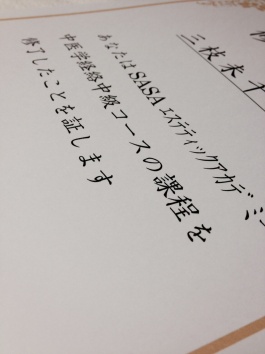 三枝未千
あなたはSASAエステティックアカデミ
中医学経絡中級コースの課程を
修了したことを証します